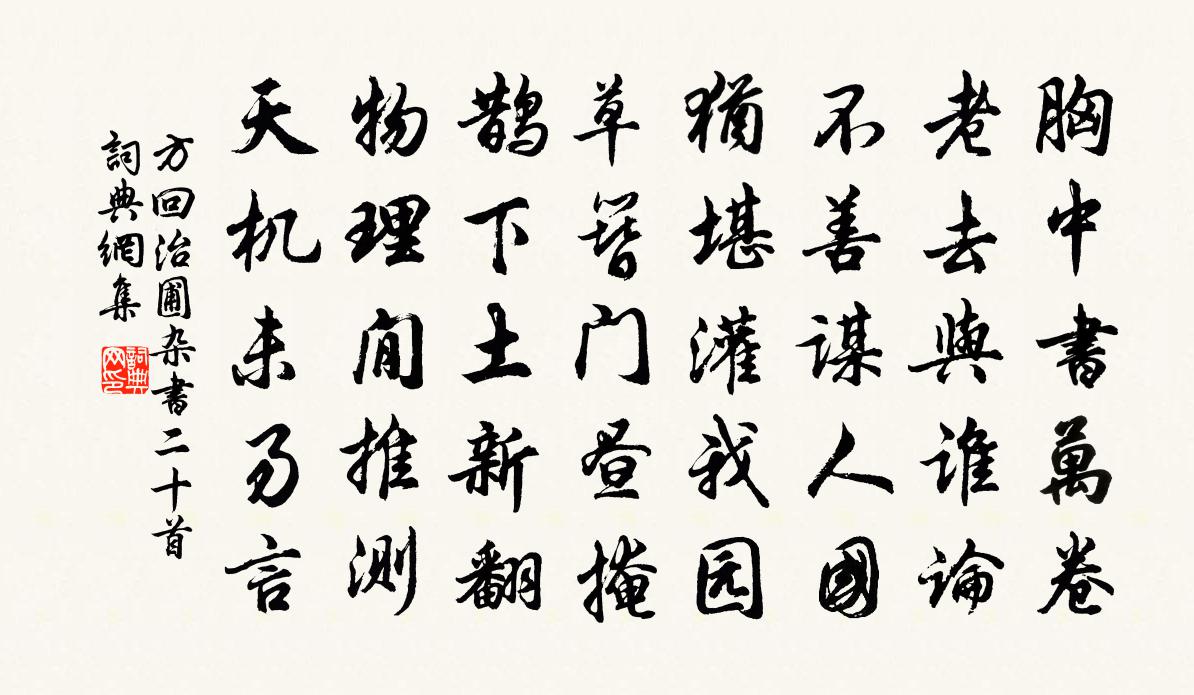 胸中書萬卷
老去與谁論
不善謀人國
猶堪灌我园
草簪门昼掩
鵲下土新翻
物理閒推测
天机未易言
方回治圃杂書二十首
詞典網集
詞典
网印